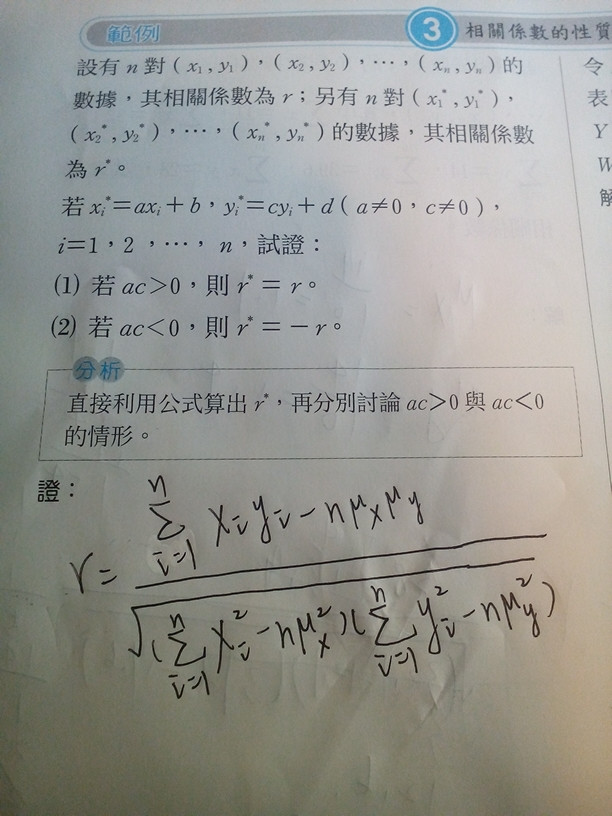 範例 3 相關係數的性質
設有 n 對 ( x₁ , y₁ ) , ( x₂ , y₂ ) , … , ( xₙ , yₙ ) 的
數據,其相關係數為 r;另有 n 對 ( x₁* , y₁* ) ,
( x₂* , y₂* ) , … , ( xₙ* , yₙ* ) 的數據,其相關係數
為 r*。
若 xᵢ*=axᵢ+b,yᵢ*=cyᵢ+d ( a≠0,c≠0 ) ,
i=1,2,…,n,試證:
(1) 若 ac>0,則 r* = r。
(2) 若 ac<0,則 r* = − r。
分析
直接利用公式算出 r*,再分別討論 ac>0 與 ac<0
的情形。
證:
r = (∑ᵢ₌₁ⁿ xᵢyᵢ − nμₓμ_y) / √((∑ᵢ₌₁ⁿ xᵢ² − nμₓ²)(∑ᵢ₌₁ⁿ yᵢ² − nμ_y²))
令
表
Y
W
解